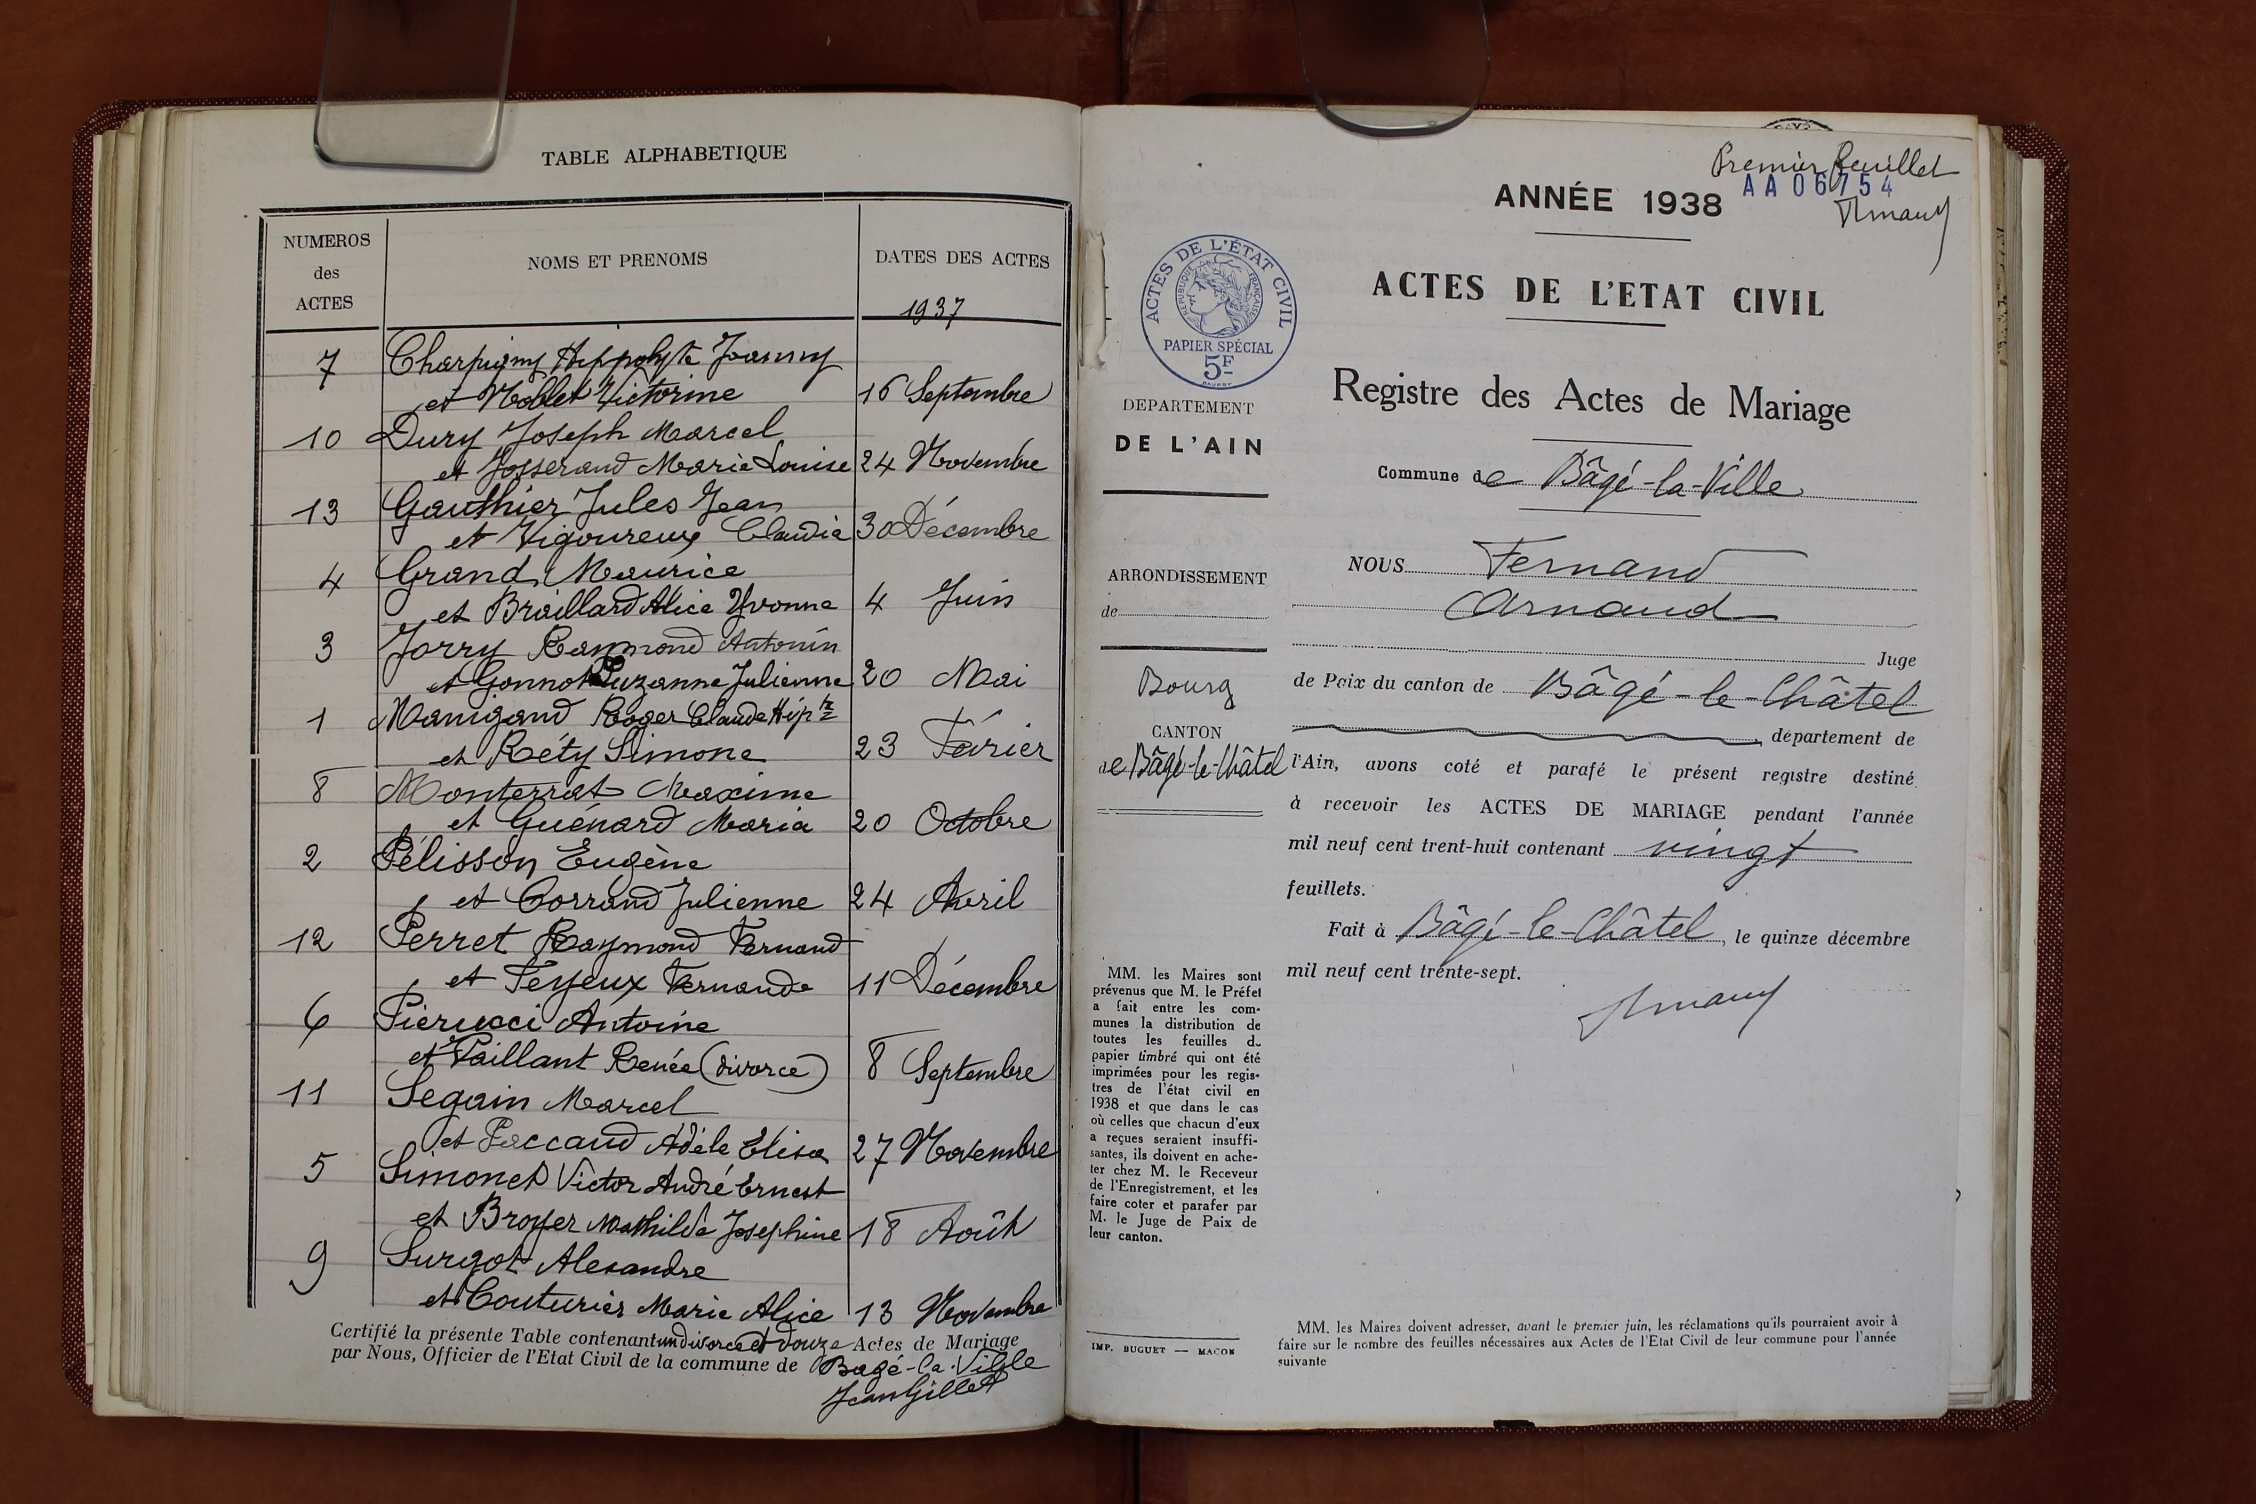 TABLE ALPHABETIQUE
NUMEROS
des
ACTES
NOMS ET PRENOMS
DATES DES ACTES
1937
7 Charpigny Hippolyte Joanny
et Noblet Victorine 16 Septembre
10 Dury Joseph Marcel
et Josserand Marie Louise 24 Novembre
13 Gauthier Jules Jean
et Vigoureux Claudia 30 Décembre
4 Grand Maurice
et Braillard Alice Yvonne 4 Juin
3 Jorry Raymond Antonin
et Gonnot Suzanne Julienne 20 Mai
1 Manigand Roger Claude Hip te
et Réty Simone 23 Février
8 Monterrat Maxime
et Guénard Maria 20 Octobre
2 Pélisson Eugène
et Corrand Julienne 24 Avril
12 Perret Raymond Fernand
et Feyeux Fernande 11 Décembre
6 Pierucci Antoine
et Vaillant Renée (divorce) 8 Septembre
11 Segain Marcel
et Paccaud Adèle Elisa 27 Novembre
5 Simonet Victor André Ernest
et Broyer Mathilde Josephine 18 Août
9 Surgot Alexandre
et Couturier Marie Alice 13 Novembre
Certifié la présente Table contenant un divorce et douze Actes de Mariage
par Nous, Officier de l'Etat Civil de la commune de Bagé-la-Ville
Jean Gillet
Premier feuillet
AA06754
Arnaud
ANNÉE 1938
ACTES DE L'ÉTAT CIVIL
RÉPUBLIQUE FRANÇAISE
PAPIER SPÉCIAL
5F
ACTES DE L'ETAT CIVIL
Registre des Actes de Mariage
DEPARTEMENT
DE L'AIN
Commune de Bâgé-la-Ville
ARRONDISSEMENT
de
Bourg
CANTON
de Bâgé-le-Châtel
NOUS Fernand
Arnaud
Juge
de Paix du canton de Bâgé-le-Châtel
département de
l'Ain, avons coté et parafé le présent registre destiné
à recevoir les ACTES DE MARIAGE pendant l'année
mil neuf cent trent-huit contenant vingt
feuillets.
Fait à Bâgé-le-Châtel, le quinze décembre
mil neuf cent trente-sept.
Arnaud
MM. les Maires sont
prévenus que M. le Préfet
a fait entre les com-
munes la distribution de
toutes les feuilles du
papier timbré qui ont été
imprimées pour les regis-
tres de l'état civil en
1938 et que dans le cas
où celles que chacun d'eux
a reçues seraient insuffi-
santes, ils doivent en ache-
ter chez M. le Receveur
de l'Enregistrement, et les
faire coter et parafer par
M. le Juge de Paix de
leur canton.
IMP. BUGUET — MACON
MM. les Maires doivent adresser, avant le premier juin, les réclamations qu'ils pourraient avoir à
faire sur le nombre des feuilles nécessaires aux Actes de l'Etat Civil de leur commune pour l'année
suivante